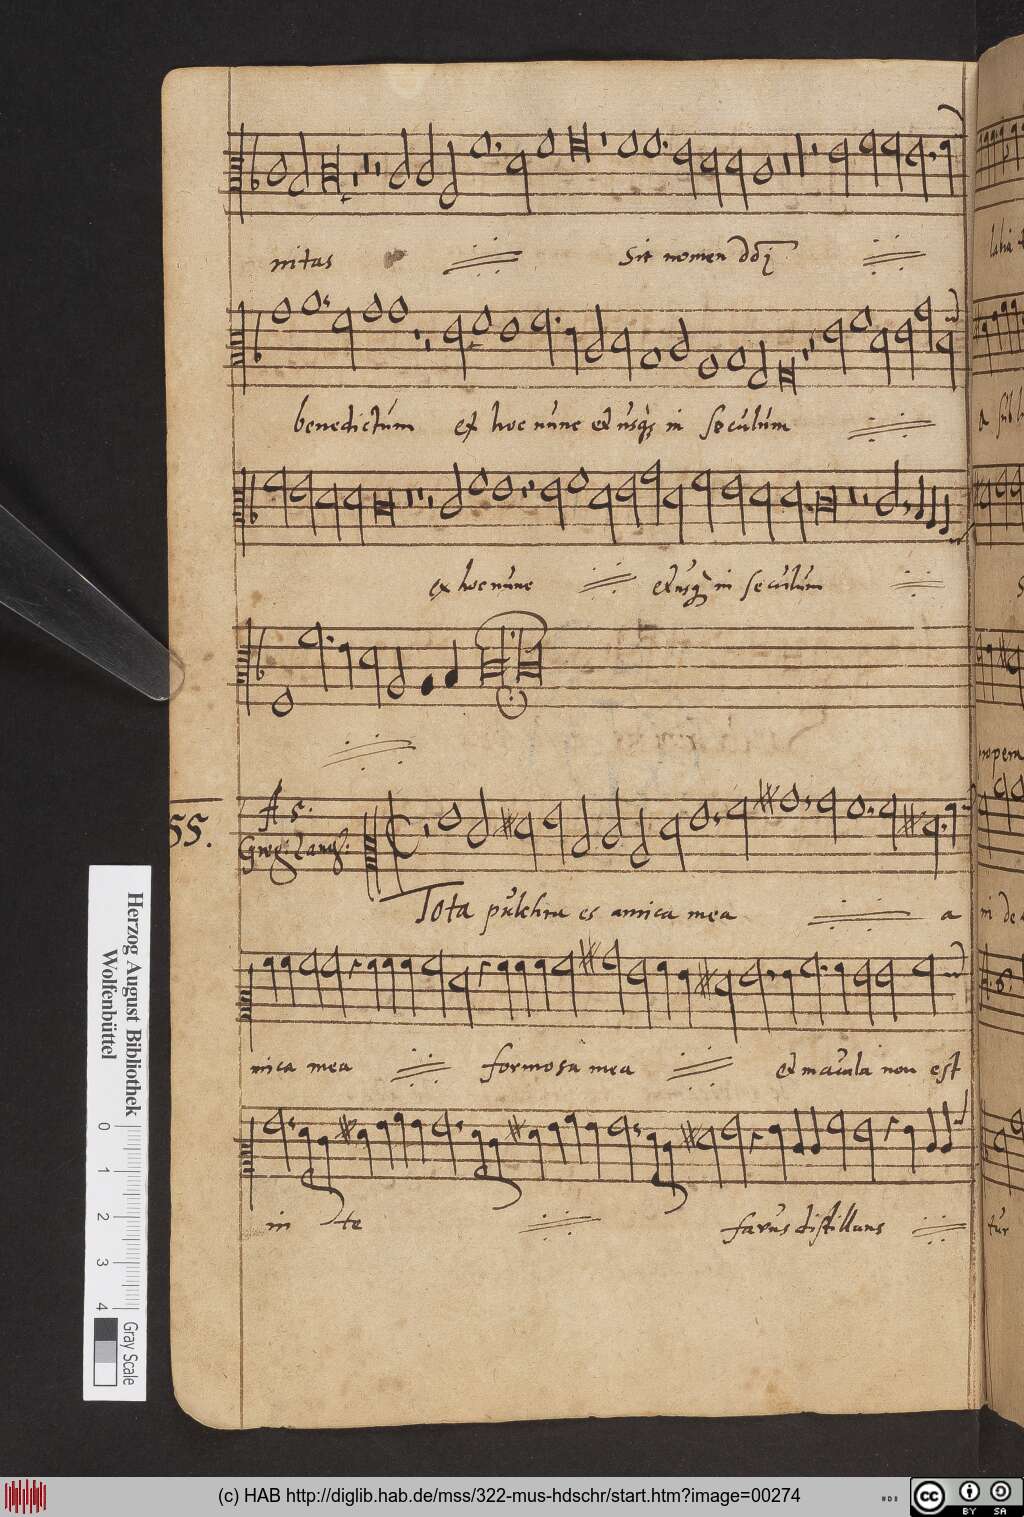 nitas Sit nomen ddj
benedictum ex hoc nunc et usq in seculum
ex hoc nunc et usq in seculum
55.
A 5.
Tota pulchra es amica mea a
mica mea formosa mea et macula non est
in te favus distillans
Herzog August Bibliothek
Wolfenbüttel
0 1 2 3 4
Gray Scale
(c) HAB http://diglib.hab.de/mss/322-mus-hdschr/start.htm?image=00274
cc BY SA